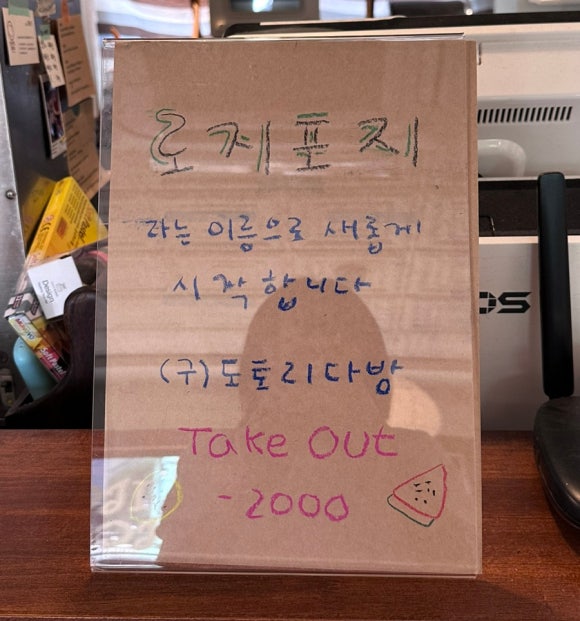 로지포지
라는 이름으로 새롭게
시작합니다
(구)도토리다방
Take Out
-2000
OS
Design